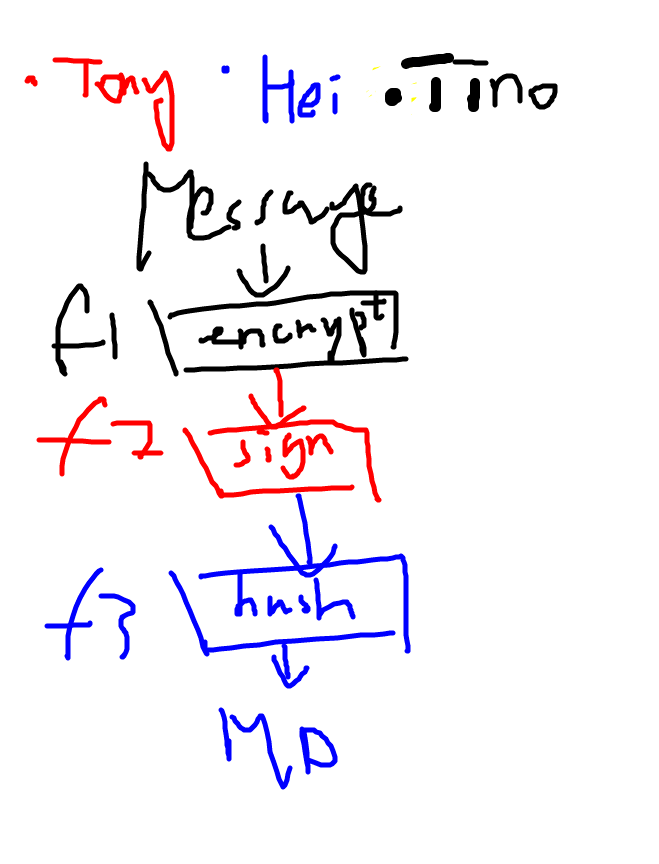 • Tony • Hei • Tino
Message
f1 encrypt
f2 sign
f3 hash
MD